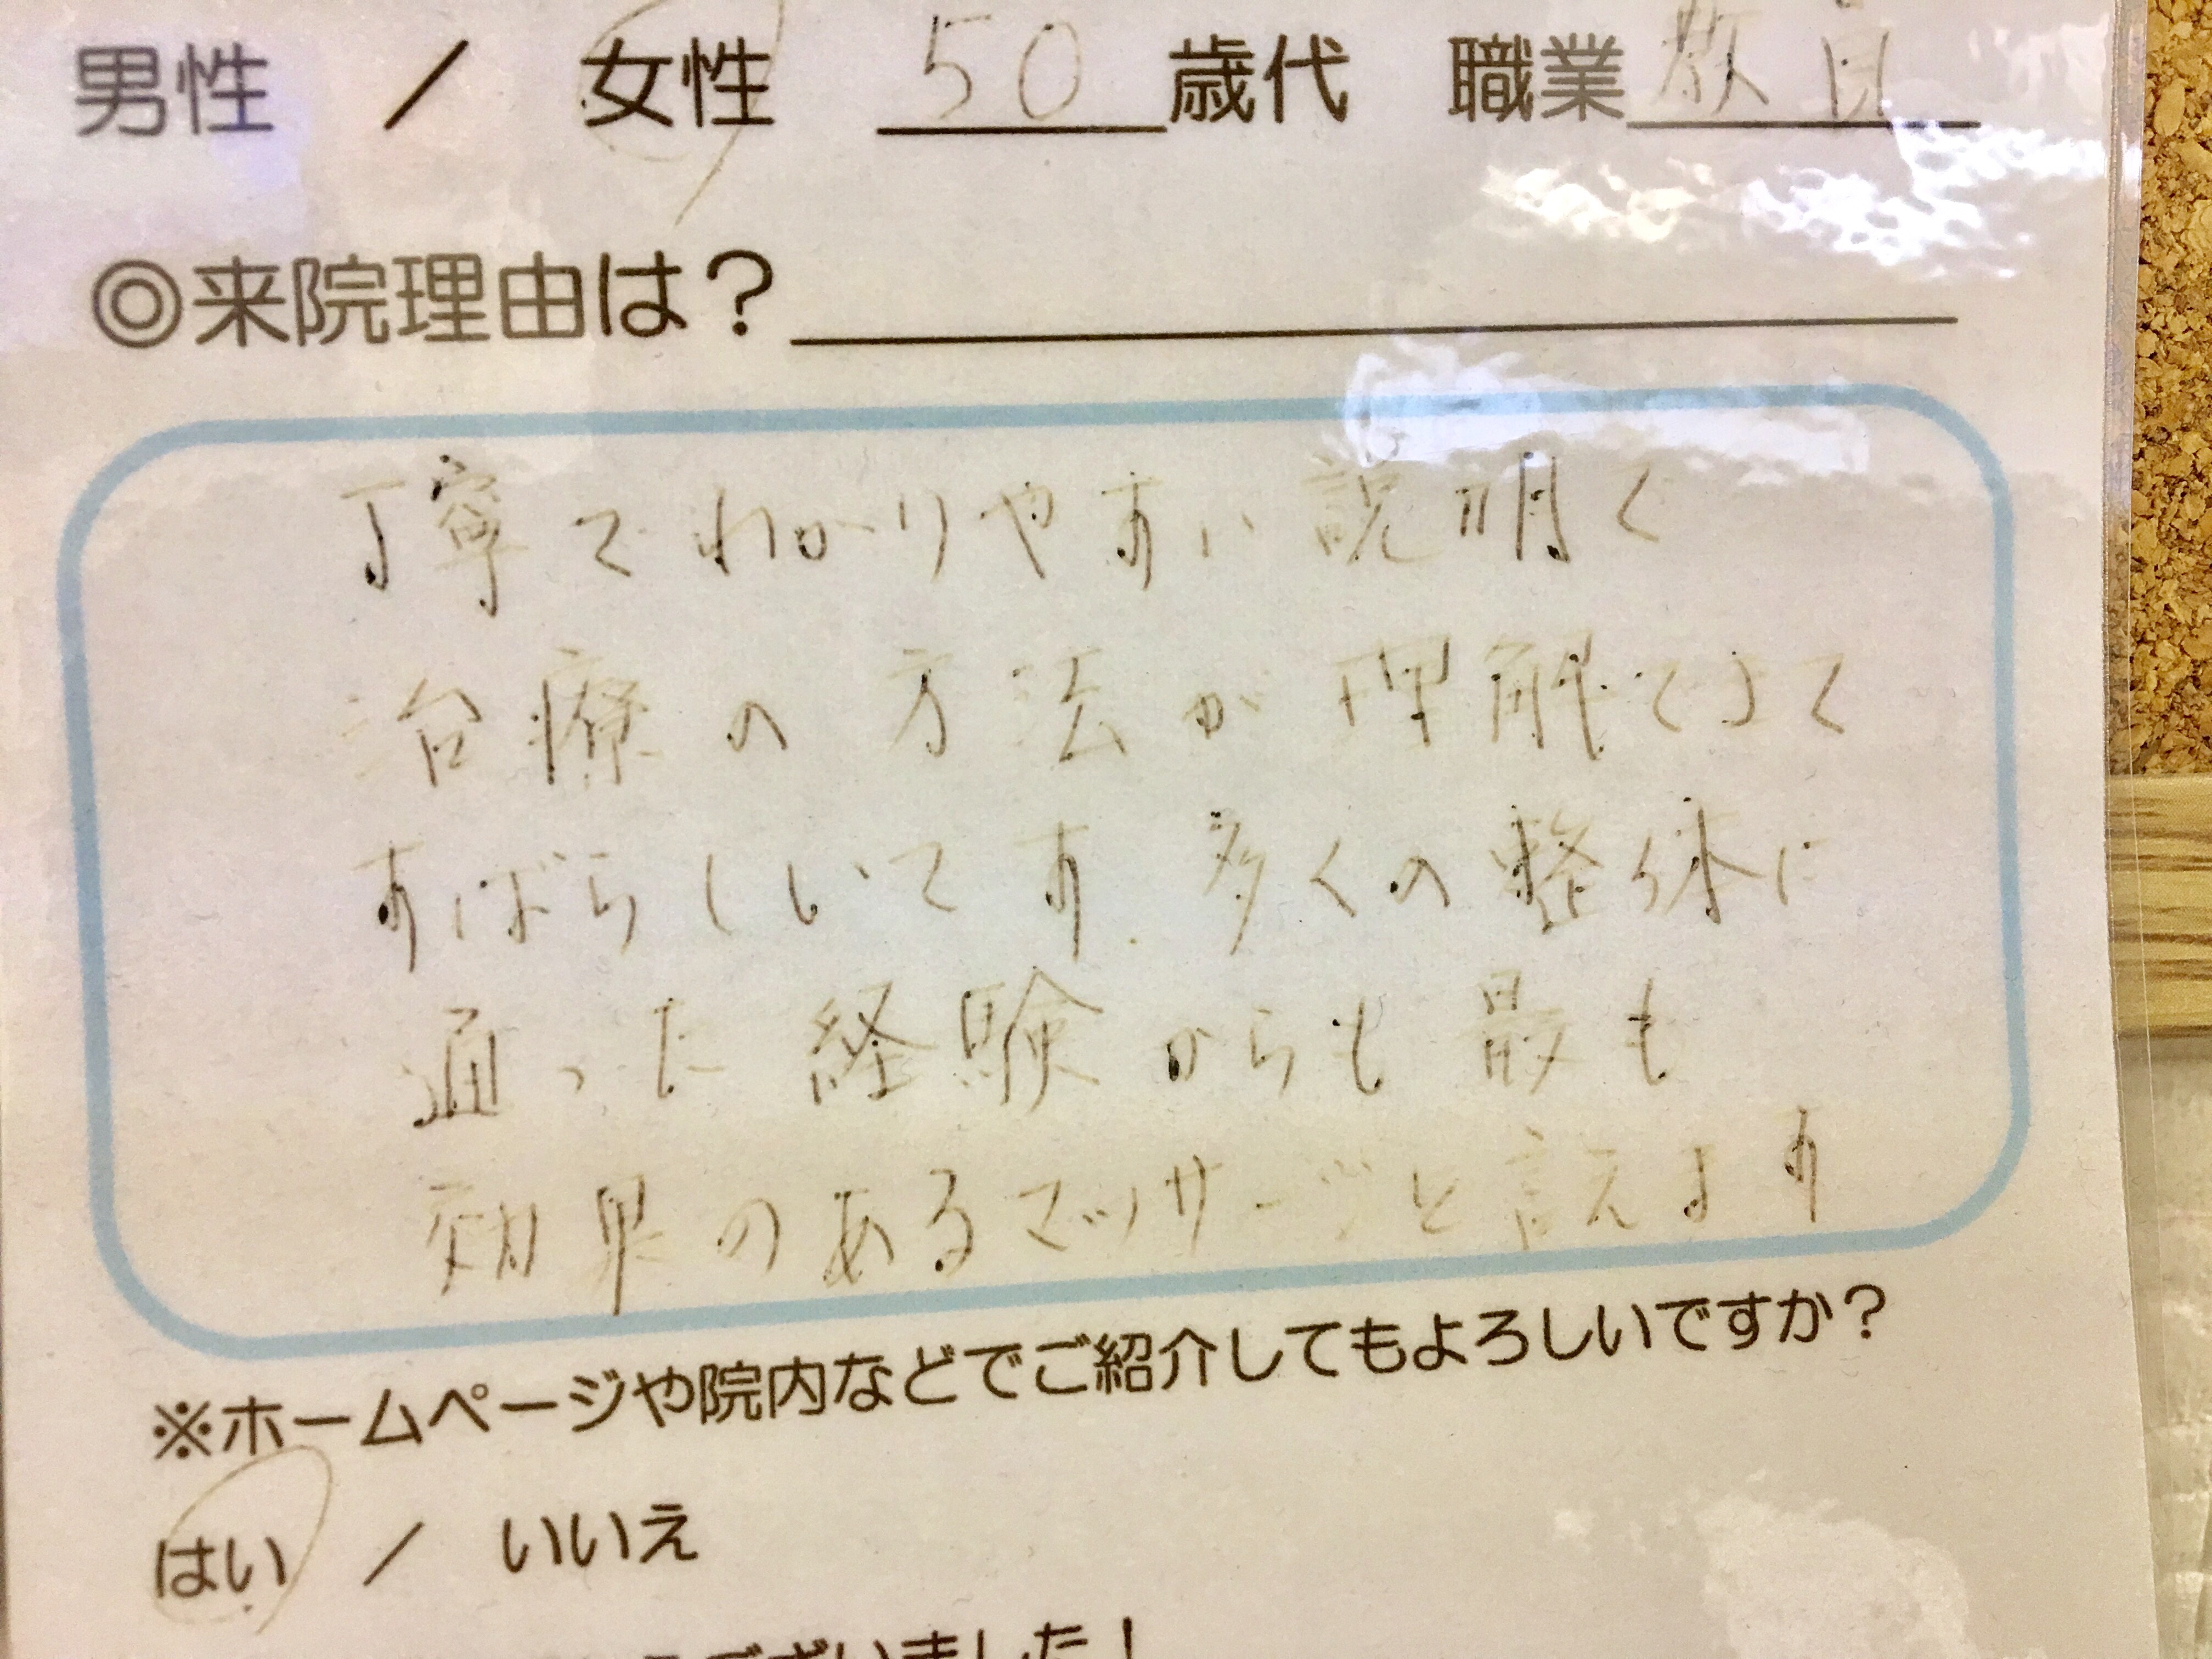 男性 / 女性 50 歳代 職業 教員
◎来院理由は?
丁寧でわかりやすい説明で
治療の方法が理解できて
すばらしいです.多くの整体に
通った経験からも最も
効果のあるマッサージと言えます
※ホームページや院内などでご紹介してもよろしいですか?
はい / いいえ
ございました!